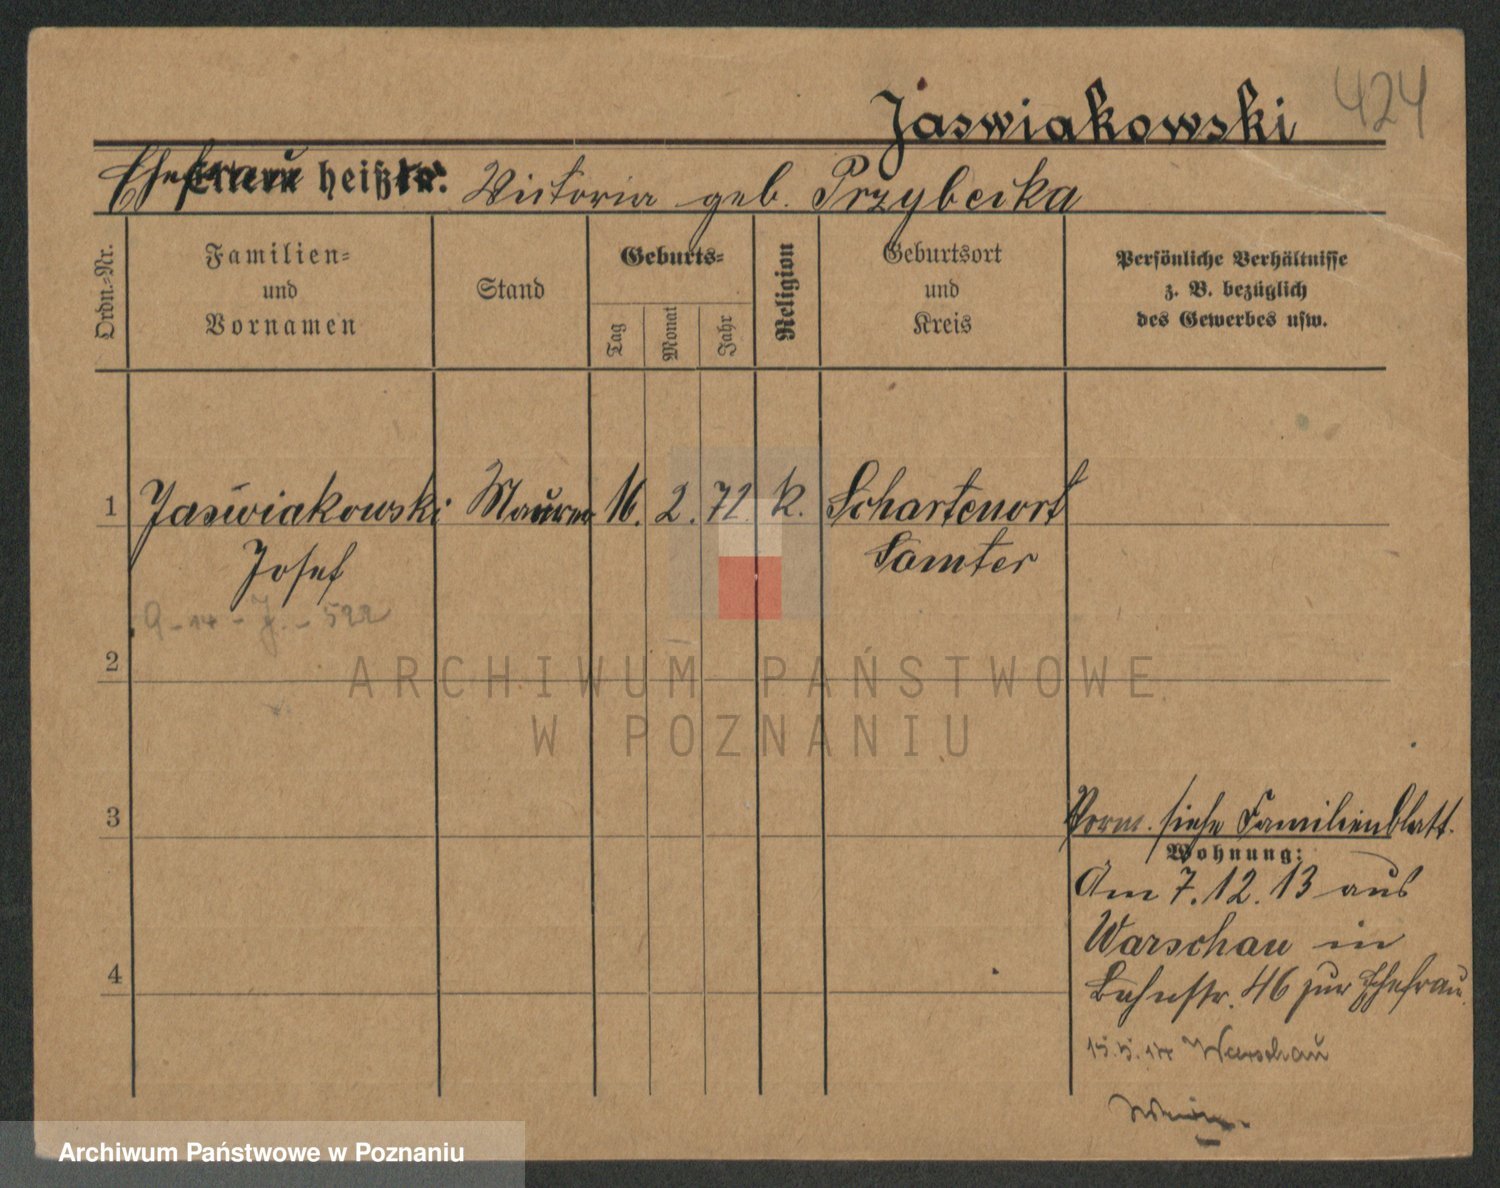 Jaswiakowski 424
Ehefrau heißt. Victoria geb. Przybecka
Ordn.-Nr.
Familien=
und
Vornamen
Stand
Geburts=
Tag
Monat
Jahr
Religion
Geburtsort
und
Kreis
Persönliche Verhältnisse
z. B. bezüglich
des Gewerbes usw.
1 Jaswiakowski Maurer 16. 2. 72 k. Scharfenort
Josef Samter
9-14-J.-522
2
ARCHIWUM PAŃSTWOWE
W POZNANIU
3
Vorm. siehe Familienblatt.
Wohnung:
Am 7.12.13 aus
Warschau in
4
Bahnstr. 46 zur Ehefrau.
15.5.14 Warschau
Archiwum Państwowe w Poznaniu